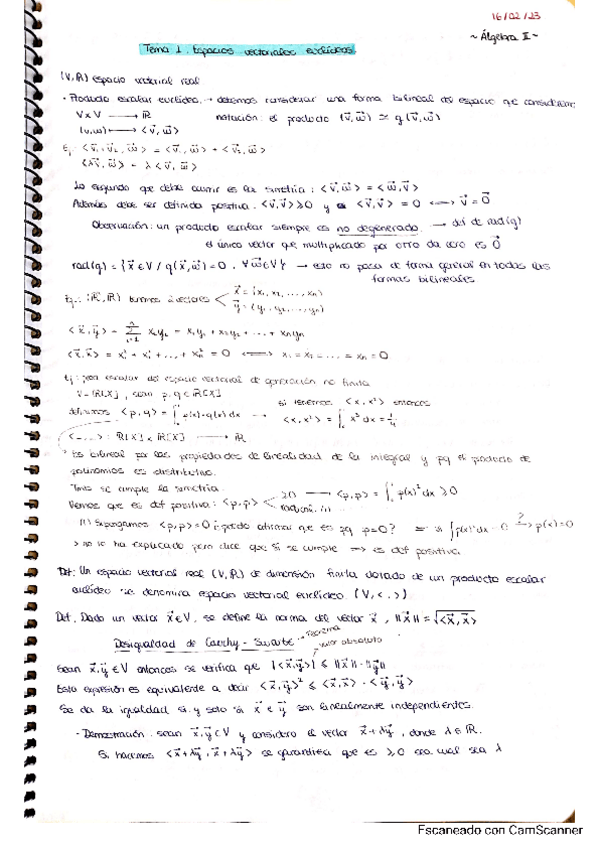 16/02/23
~ Álgebra II ~
Tema 1. Espacios vectoriales euclídeos
(V, R) espacio vectorial real
· Producto escalar euclídeo → debemos considerar una forma bilineal del espacio que consideramos
V x V → R notación: el producto (v⃗, w⃗) ≃ q(v⃗, w⃗)
(v, w) ↦ <v⃗, w⃗>
<v⃗₁ + v⃗₂, w⃗> = <v⃗₁, w⃗> + <v⃗₂, w⃗>
<λv⃗, w⃗> = λ<v⃗, w⃗>
Lo segundo que debe ocurrir es la simetría: <v⃗, w⃗> = <w⃗, v⃗>
Además debe ser definida positiva: <v⃗, v⃗> ≥ 0 y <v⃗, v⃗> = 0 ⟷ v⃗ = 0⃗
Observación: un producto escalar siempre es no degenerado. → def de rad(q)
el único vector que multiplicado por otro da cero es 0⃗
rad(q) = {x⃗ ∈ V / q(x⃗, w⃗) = 0, ∀w⃗ ∈ V} → esto no pasa de forma general en todas las
formas bilineales
Ej.: (Rⁿ, R) tenemos 2 vectores x⃗ = (x₁, x₂, ..., xₙ)
y⃗ = (y₁, y₂, ..., yₙ)
<x⃗, y⃗> = x₁y₁ + x₂y₂ + ... + xₙyₙ
<x⃗, x⃗> = x₁² + x₂² + ... + xₙ² = 0 ⟷ x₁ = x₂ = ... = xₙ = 0
Ej: escalar del espacio vectorial de generación no finita
V = R[X], sean p, q ∈ R[X] si tenemos <x, x²> entonces
definimos <p, q> = ∫ p(x)·q(x) dx → <x, x²> = ∫ x³ dx = 1/4
<_,_> : R[X] x R[X] → R
* Es bilineal por las propiedades de linealidad de la integral y pq el producto de
polinomios es distributivo.
se cumple la simetría
Vemos que es def positiva: <p, p> ≥ 0 → <p, p> = ∫ p(x)² dx ≥ 0
(1) Supongamos <p, p> = 0 ¿puedo afirmar que es pq p = 0? → si ∫ p(x)² dx = 0 ⟹ p(x) = 0
> no lo ha explicado pero dice que si se cumple → es def positiva.
Def: Un espacio vectorial real (V, R) de dimensión finita dotado de un producto escalar
euclídeo se denomina espacio vectorial euclídeo. (V, <,>)
Def. Dado un vector x⃗ ∈ V, se define la norma del vector x⃗, ‖x⃗‖ = √<x⃗, x⃗>
Desigualdad de Cauchy - Swartz → Teorema
valor absoluto
Sean x⃗, y⃗ ∈ V entonces se verifica que |<x⃗, y⃗>| ≤ ‖x⃗‖ · ‖y⃗‖
Esta expresión es equivalente a decir <x⃗, y⃗>² ≤ <x⃗, x⃗> · <y⃗, y⃗>
Se da la igualdad si y solo si x⃗ e y⃗ son linealmente independientes.
- Demostración: sean x⃗, y⃗ ∈ V y considero el vector x⃗ + λy⃗, donde λ ∈ R.
Si hacemos <x⃗ + λy⃗, x⃗ + λy⃗> se garantiza que es ≥ 0 sea cual sea λ
Escaneado con CamScanner